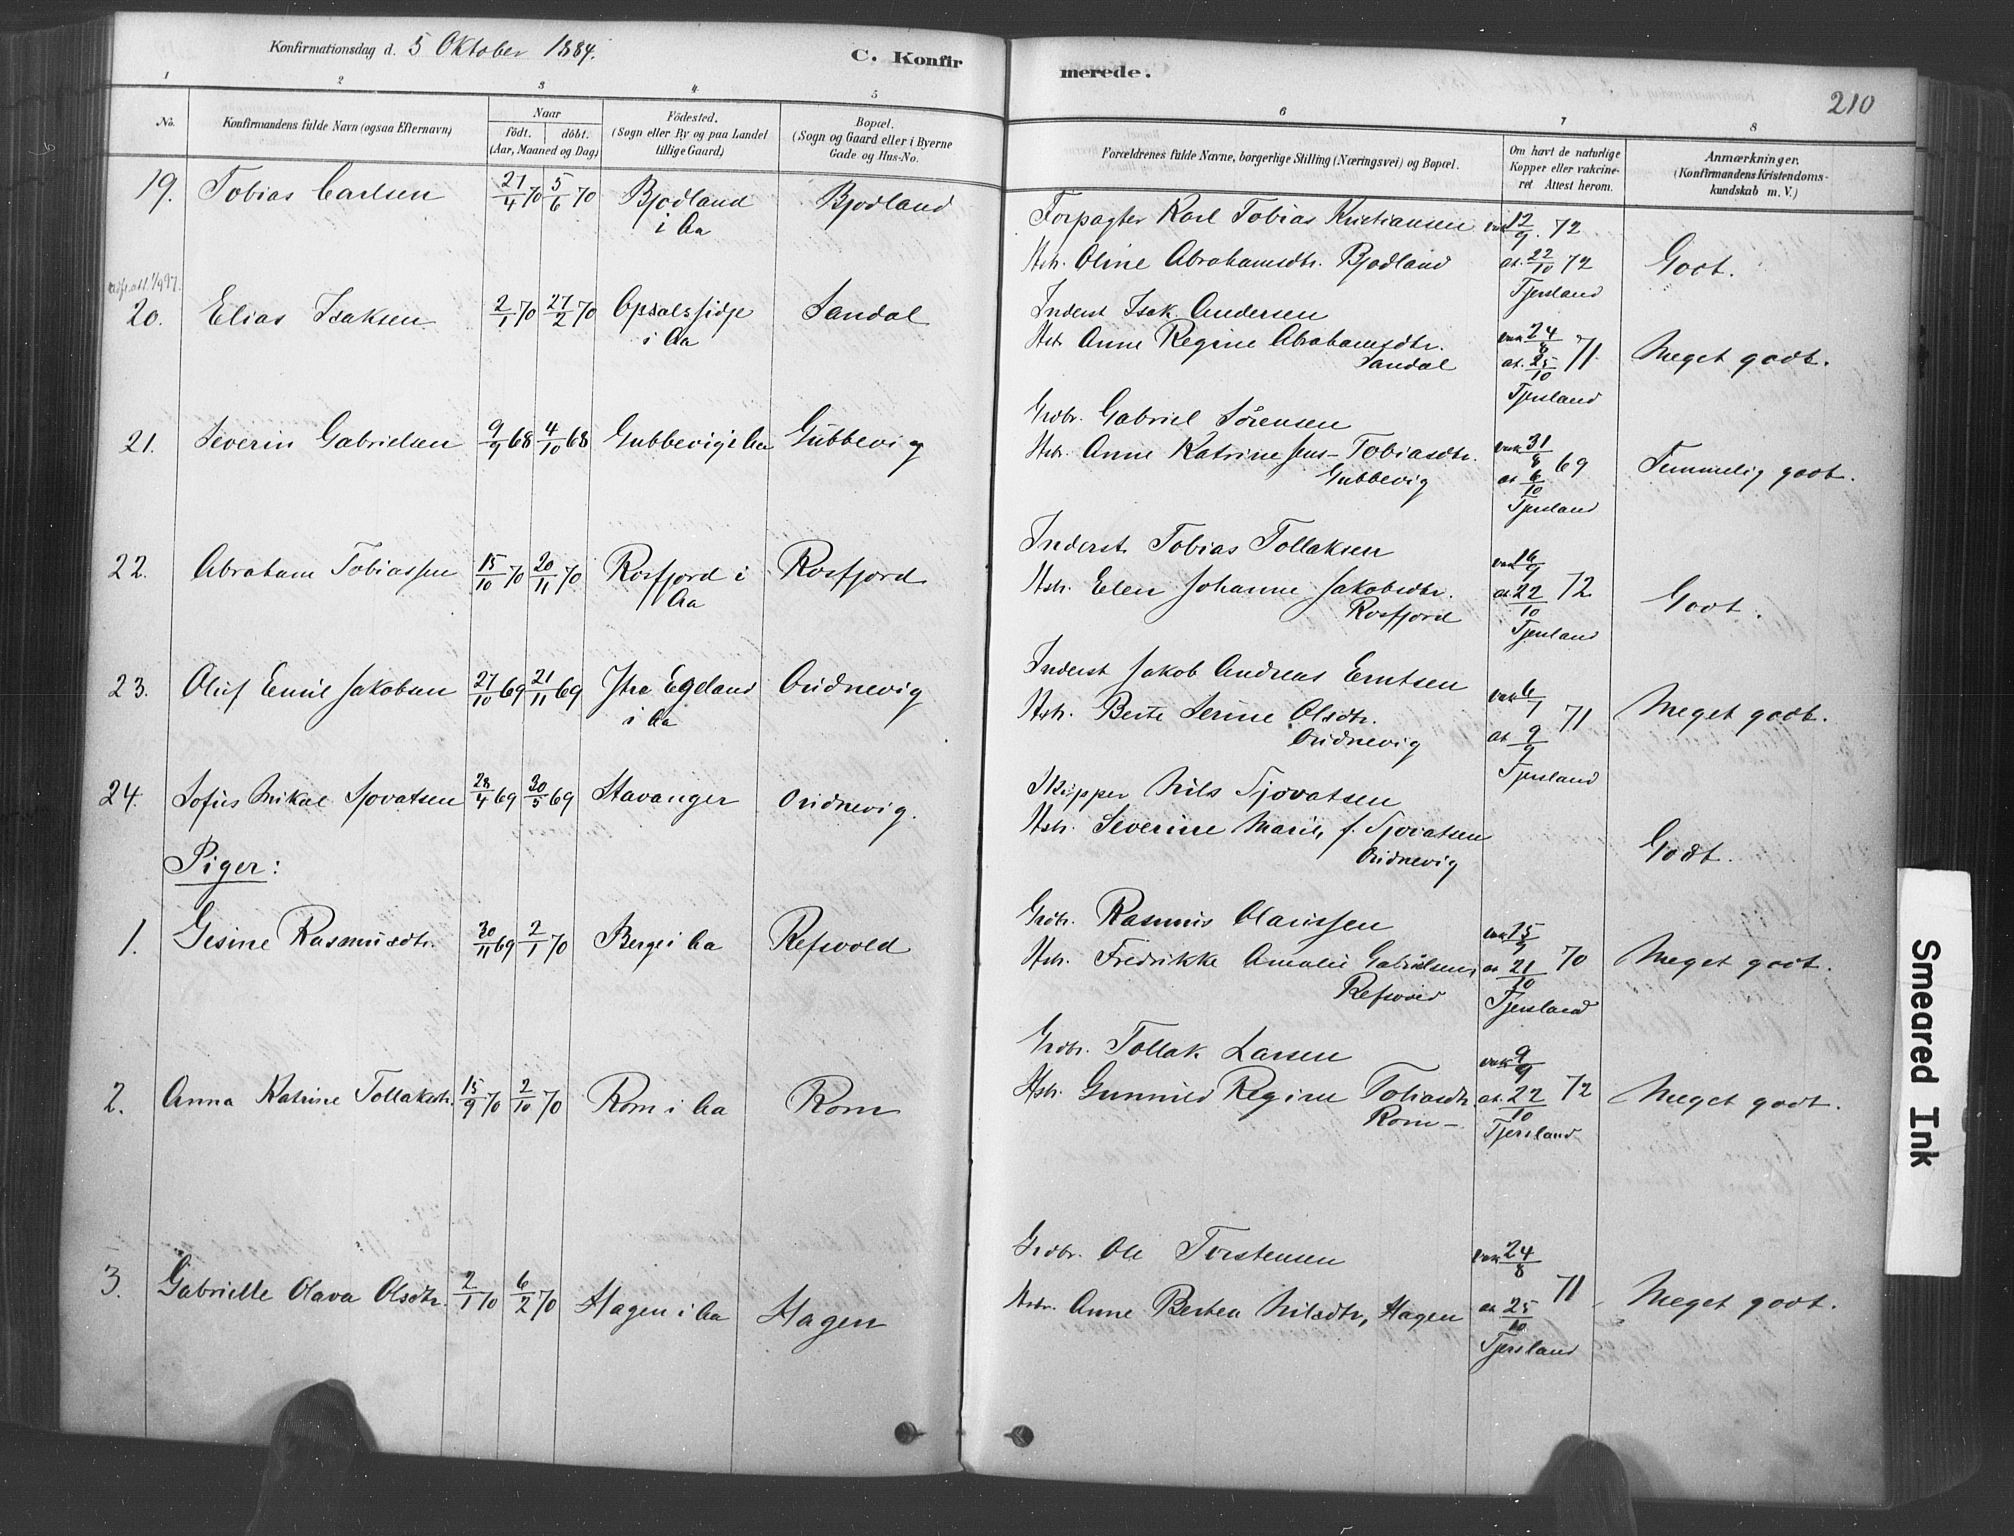 Konfirmationsdag d. 5 Oktober 1884.
C. Konfirmerede.
210
1 2 3 4 5 6 7 8
No.
Konfirmandens fulde Navn (ogsaa Efternavn)
Naar
födt. döbt.
(Aar, Maaned og Dag)
Födested.
(Sogn eller By og paa Landet
tillige Gaard)
Bopæl.
(Sogn og Gaard eller i Byerne
Gade og Hus-No.
Forældrenes fulde Navne, borgerlige Stilling (Næringsvei) og Bopæl.
Om havt de naturlige
Kopper eller vakcine-
ret Attest herom.
Anmærkninger.
(Konfirmandens Kristendoms-
kundskab m. V.)
19. Tobias Carlsen 21/4 70 5/6 70 Bjodland i Aa Bjodland
Forpagter Karl Tobias Kristiansen
Hstr. Oline Abrahamsdtr. Bjodland
vak 12/9. 72
at. 22/10 72
Tjersland
Godt.
20. Elias Isaksen 2/1 70 27/2 70 Opsalsfidje i Aa Sandal
Inderst Isak Andersen
Hstr Anne Regine Abrahamsdtr.
Sandal
vak 24/8
at. 25/10 71
Tjersland
Meget godt.
21. Severin Gabrielsen 9/9 68 4/10 68 Gubbevig i Aa Gubbevig
Grdbr. Gabriel Sörensen
Hstr. Anne Katrine Tobiasdtr.
Gubbevig
vak 31/8
at 6/10 69
Tjersland
Temmelig godt.
22. Abraham Tobiassen 15/10 70 20/11 70 Rosfjord i Aa Rosfjord
Inderst Tobias Tollaksen
Hstr. Elen Johanne Jakobsdtr.
Rosfjord
vak 16/9
at 22/10 72
Tjersland
Godt.
23. Oluf Emil Jakobsen 27/10 69 21/11 69 Ytre Egeland i Aa Oudnevig
Inderst Jakob Andreas Erntsen
Hstr. Berte Serine Olsdtr.
Oudnevig
vak 6/7
at 9/9 71
Tjersland
Meget godt.
24. Sofus Mikal Sjovatsen 28/4 69 30/5 69 Stavanger Oudnevig.
Skipper Nils Sjovatsen
Hstr. Severine Marie, f. Sjovatsen
Oudnevig
Godt.
Piger:
1. Gesine Rasmusdtr. 30/11 69 2/1 70 Berge i Aa Refsvold
Grdbr. Rasmus Olaussen
Hstr. Fredrikke Amalie Gabrielsen,
Refsvold
vak 15/9
at 21/10 70
Tjersland
Meget godt.
2. Anna Katrine Tollaksdtr. 15/9 70 2/10 70 Rom i Aa Rom
Grdbr. Tollak Larsen
Hstr. Gunnild Regine Tobiasdtr.
Rom –
vak 9/9
at. 22/10 72
Tjersland
Meget godt.
3. Gabrielle Olava Olsdtr. 2/1 70 6/2 70 Hagen i Aa Hagen
Grdbr. Ole Torstensen
Hstr. Anne Bertea Nilsdtr, Hagen
vak 24/8
at 25/10 71
Tjersland
Meget godt.
Smeared Ink